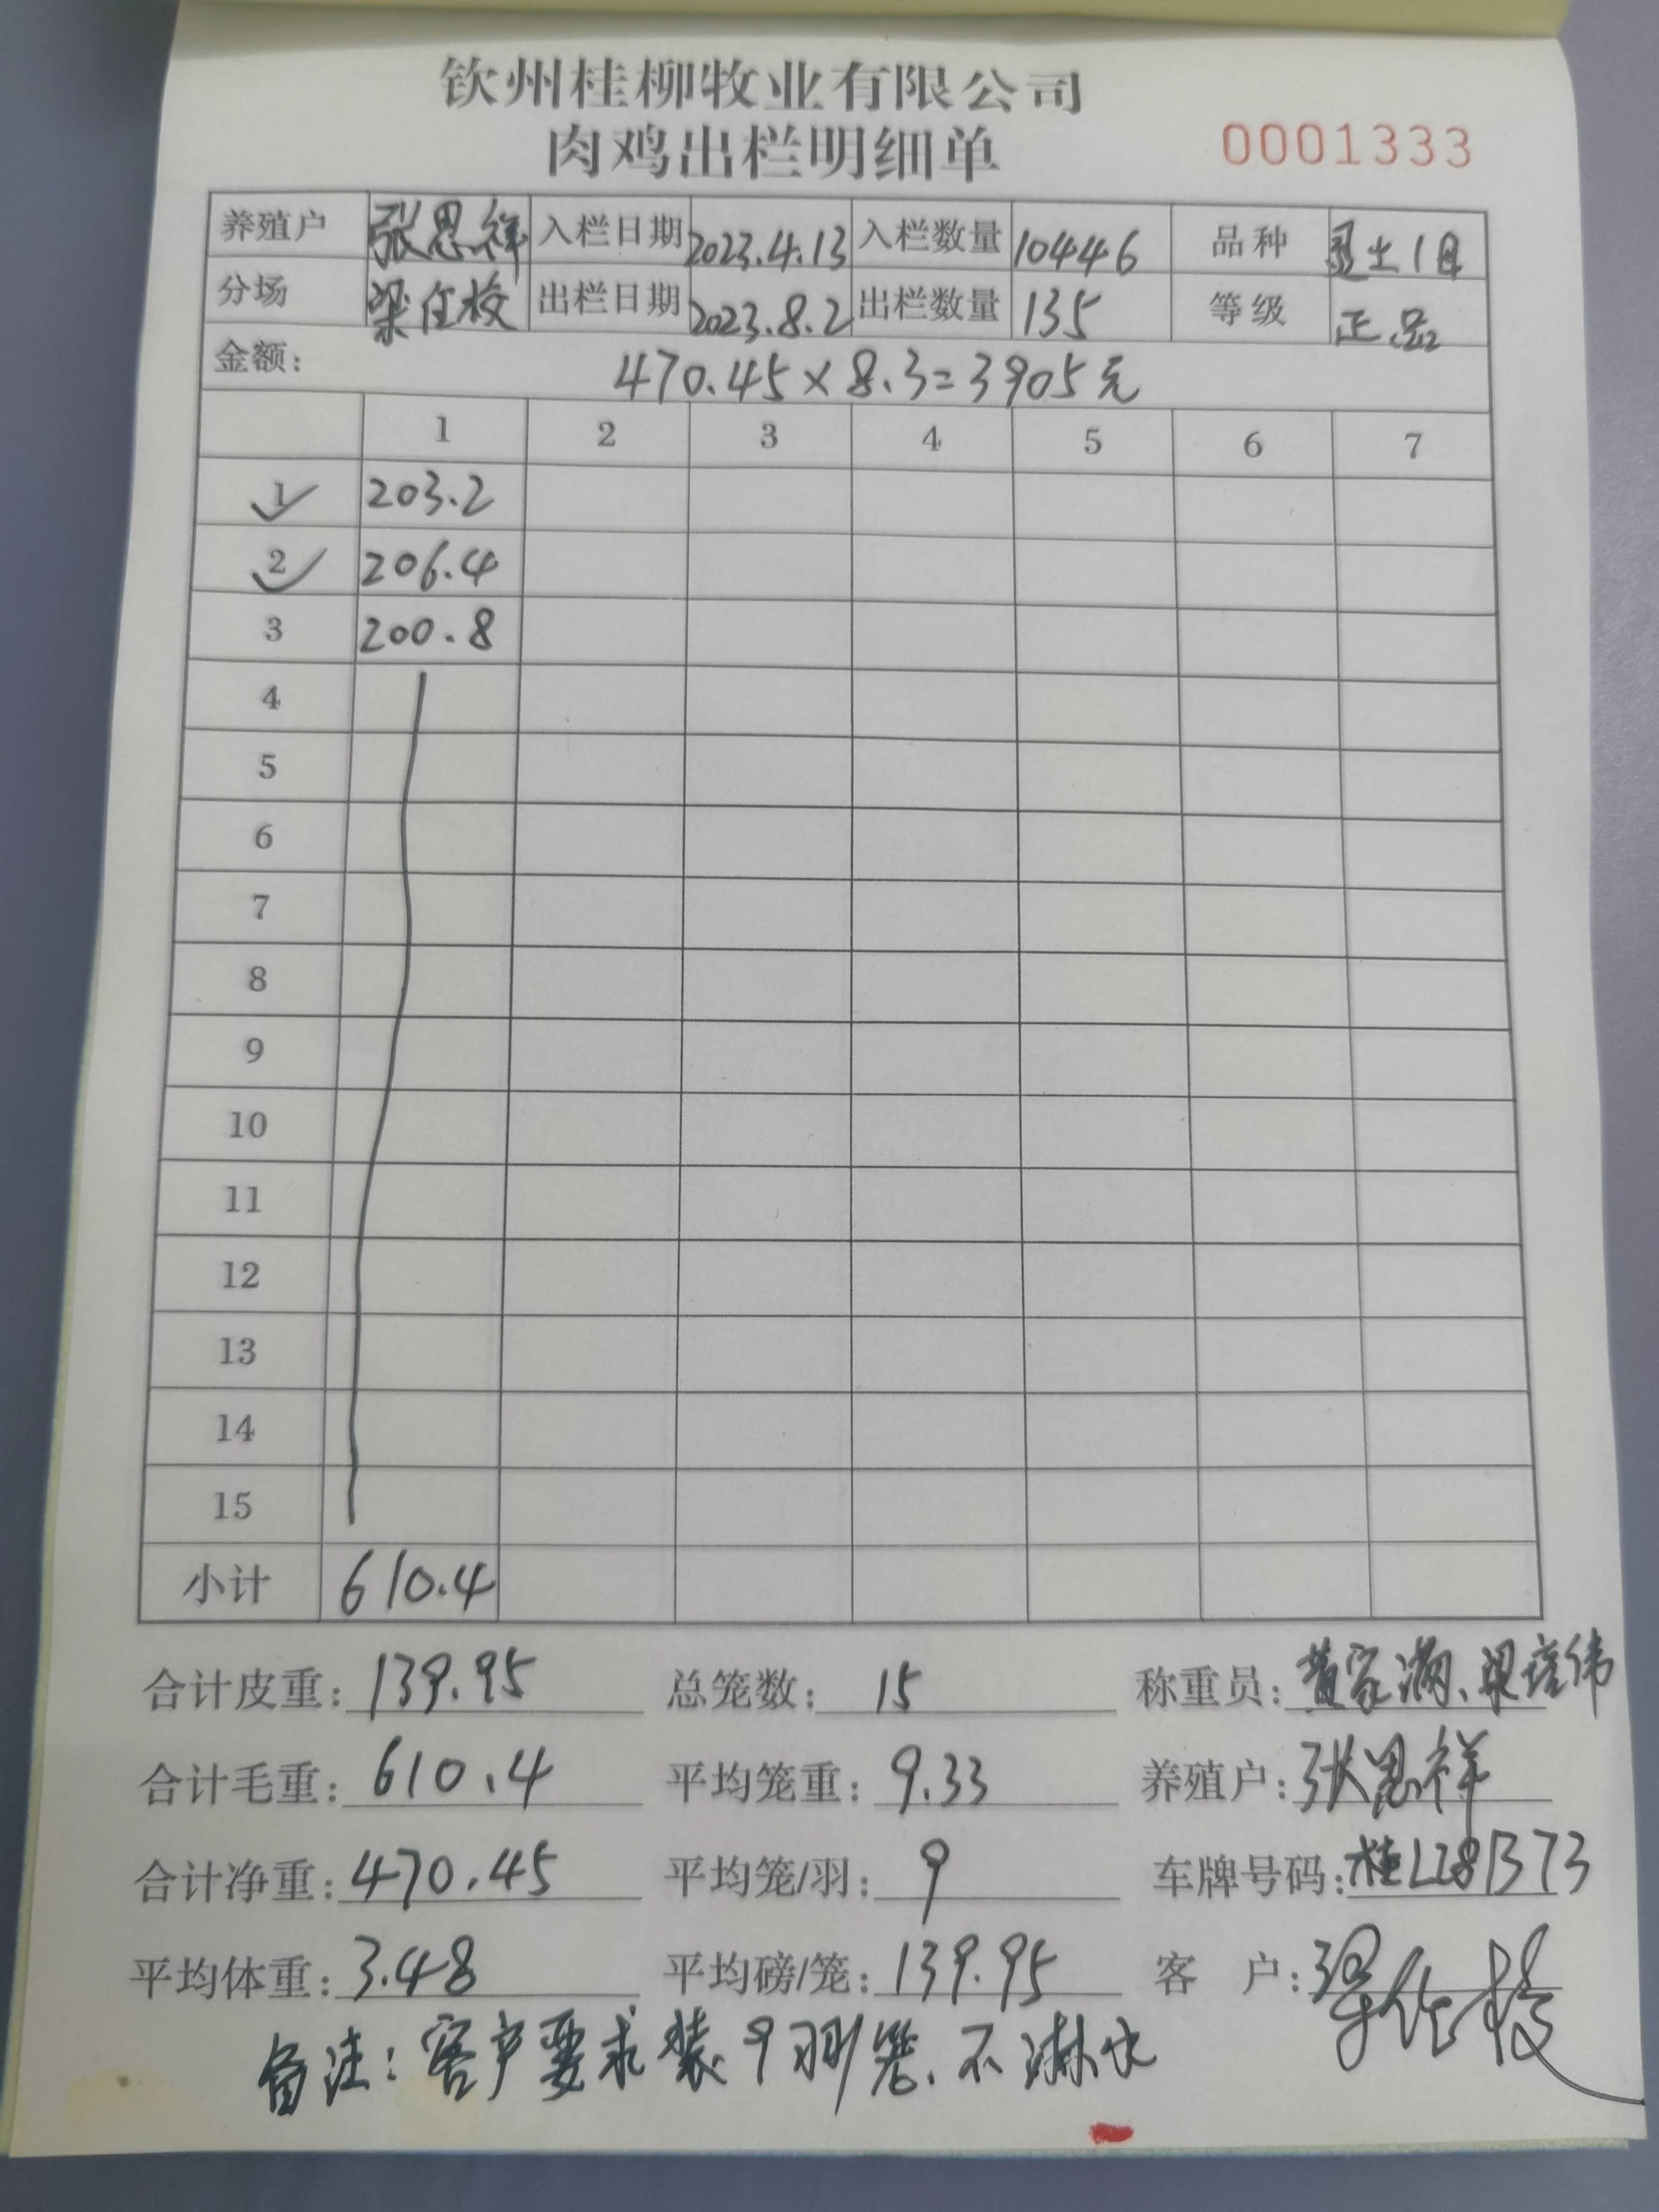 钦州桂柳牧业有限公司
肉鸡出栏明细单 0001333
养殖户 张思祥 入栏日期 2023.4.13 入栏数量 10446 品种 土1
分场 出栏日期 2023.8.2 出栏数量 135 等级 正品
金额: 470.45×8.3=3905元
1 2 3 4 5 6 7
1 203.2
2 206.4
3 200.8
4
5
6
7
8
9
10
11
12
13
14
15
小计 610.4
合计皮重: 139.95 总笼数: 15 称重员: 黄家满、梁培伟
合计毛重: 610.4 平均笼重: 9.33 养殖户: 张思祥
合计净重: 470.45 平均笼/羽: 9 车牌号码: 桂L28B73
平均体重: 3.48 平均磅/笼: 139.95 客 户:
备注: 客户要求装9羽/笼、不淋水